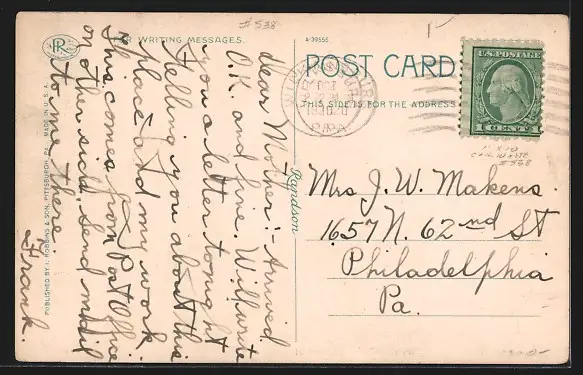 #538
FOR WRITING MESSAGES.
A-39555
POST CARD
THIS SIDE IS FOR THE ADDRESS
U.S. POSTAGE
1 CENT 1
PR
Dear Mother:- Arrived
O.K. and fine. Will write
you a letter tonight
telling you about this
place and my work.
This comes from Post Office
on other side. Send mail
to me there.
"Frank.
Randson
PUBLISHED BY I. ROBBINS & SON, PITTSBURGH, PA. MADE IN U.S.A.
Mrs J. W. Makens.
1657 N. 62nd St
Philadelphia
Pa.
OCT
PA
#538